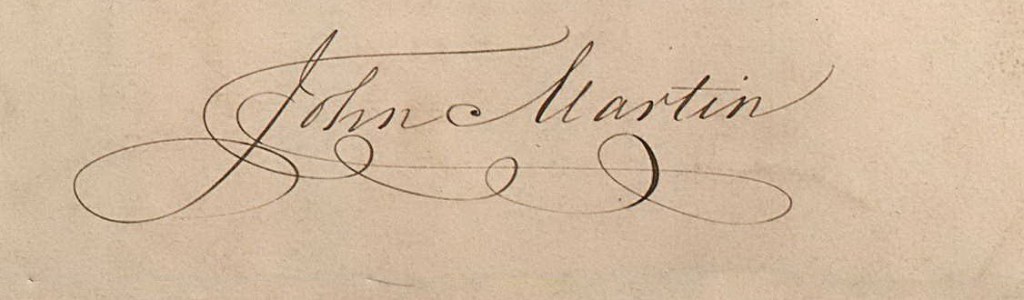 John Martin